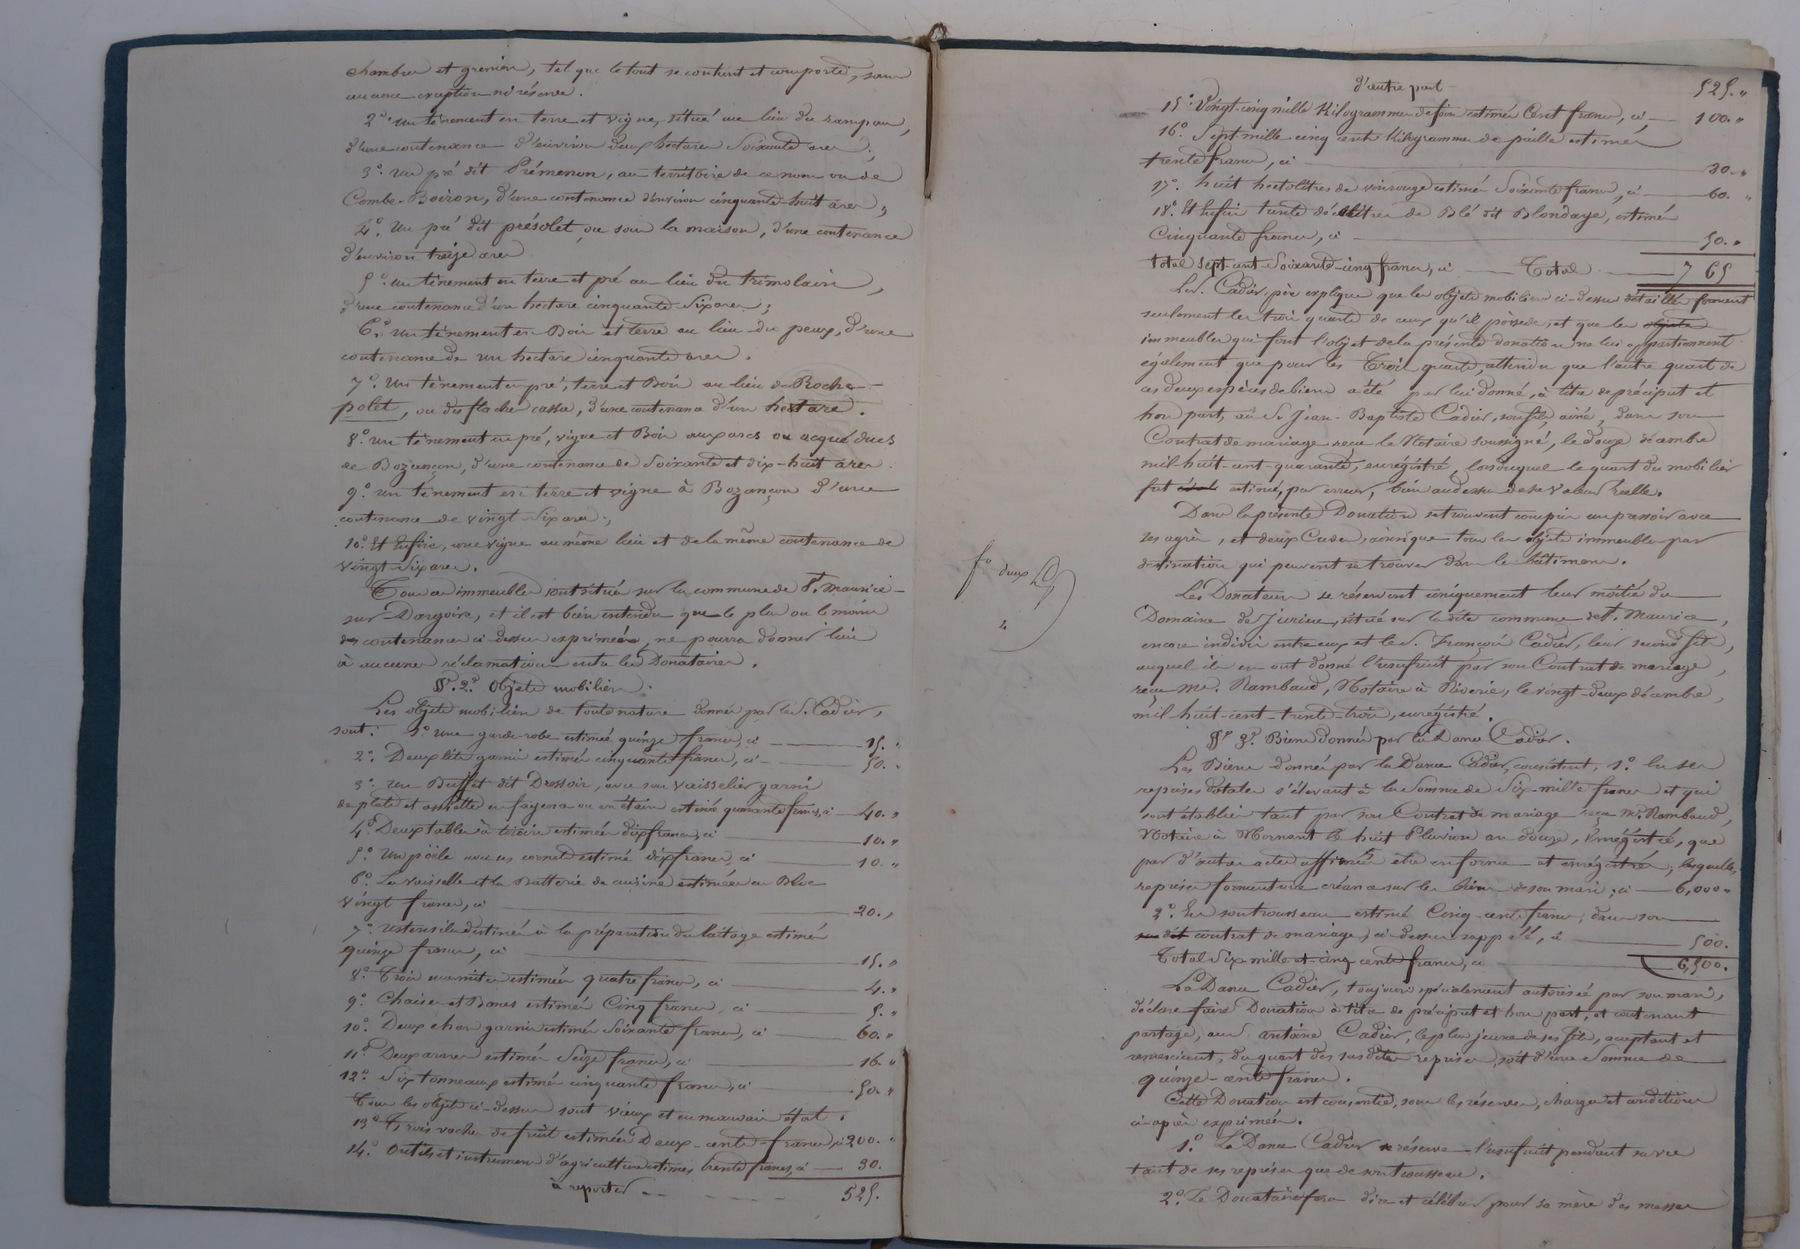 chambres et greniers, tel que le tout se contient et comporte, sans
aucune exception ni réserve.
2° Un tènement en terre et vigne, situé au lieu du rampau,
d'une contenance d'environ deux hectares Soixante ares;
3° Un pré dit Prémenon, au territoire de ce nom ou de
Combe-Boiron, d'une contenance d'environ cinquante-huit ares;
4° Un pré dit présolet, ou sous la maison, d'une contenance
d'environ treize ares
5° un tènement en terre et pré au lieu du trimolain,
d'une contenance d'un hectare cinquante Six ares;
6° un tènement en Bois et terre au lieu du peux, d'une
contenance de un hectare cinquante ares.
7° Un tènement en pré, terre et Bois au lieu de Roche-
polet, ou du flache cassa, d'une contenance d'un hectare.
8° un tènement en pré, vigne et Bois aux arcs ou acqueducs
de Bozançon, d'une contenance de Soixante et dix-huit ares.
9° un tènement en terre et vigne à Bozançon d'une
contenance de vingt Six ares;
10° Et Enfin, une vigne au même lieu et de la même contenance de
vingt-Six ares.
Tous ces immeubles sont situés sur la commune de St. Maurice-
sur-Dargoire, et il est bien entendu que le plus ou le moins
des contenances ci-dessus exprimées, ne pourra donner lieu
à aucune réclamation entre les Donataires.
§. 2° Objets mobiliers.
Les objets mobiliers de toute nature donnés par le S. Cadier,
sont: 1° Une garde-robe estimée quinze francs, ci 15. "
2° Deux lits garnis estimés cinquante francs, ci 50. "
3° un Buffet dit Dressoir, avec son vaisselier garni
de plats et assiettes en fayence ou en étain estimé quarante francs, ci 40. "
4° Deux tables à tiroirs estimées dix francs, ci 10. "
5° Un poële avec ses cornets estimé dix francs, ci 10. "
6° La vaisselle et la Batterie de cuisine estimées en Bloc
vingt francs, ci 20. "
7° ustensiles destinés à la préparation du laitage estimés
quinze francs, ci 15. "
8° Trois marmites estimées quatre francs, ci 4. "
9° Chaises et Bancs estimés Cinq francs, ci 5. "
10° Deux chars garnis estimés Soixante francs, ci 60. "
11° Deux araires estimés Seize francs, ci 16. "
12° Six tonneaux estimés cinquante francs, ci 50. "
Tous les objets ci-dessus sont vieux et en mauvais état.
13° Trois vaches de fruit estimées Deux-cents francs, ci 200. "
14° Outils et instrumens d'agriculture estimés trente francs, ci 30.
à reporter 525.
fo deux
d'autre part 525. "
15° Vingt-cinq mille Kilogrammes de foin estimés Cent francs, ci 100. "
16° Sept mille cinq cents Kilogrammes de paille estimés
trente francs, ci 30. "
17° huit hectolitres de vin rouge estimés Soixante francs, ci 60. "
18° Et Enfin trente décalitres de Blé dit Blondaye, estimés
Cinquante francs, ci 50. "
total sept-cent-Soixante-cinq francs, ci Total 765
Le S. Cadier père explique que les objets mobiliers ci-dessus détaillés forment
seulement les trois quarts de ceux qu'il possède, et que les objets
immeubles qui font l'objet de la présente donation ne lui appartiennent
également que pour les Trois quarts, attendu que l'autre quart de
ces deux espèces de biens a été par lui donné, à titre de préciput et
hors part, au S. Jean-Baptiste Cadier, son fils aîné, dans son
Contrat de mariage reçu le Notaire soussigné, le douze décembre
mil huit-cent-quarante, enrégistré, lors duquel le quart du mobilier
fut estimé, par erreur, bien au dessus de sa valeur réelle.
Dans la présente Donation se trouvent compris un pressoir avec
ses agrès, et deux Cuves, ainsi que tous les objets immeubles par
destination qui peuvent se trouver dans les bâtimens.
Les Donateurs se réservent uniquement leur moitié du
Domaine de Jurieux, situé sur la dite commune de St. Maurice,
encore indivis entre eux et le S. François Cadier, leur second fils,
auquel ils en ont donné l'usufruit par son Contrat de mariage,
reçu Me. Rambaud, Notaire à Riverie, le vingt-deux décembre,
mil huit-cent-trente-trois, enregistré.
§ 3° Biens donnés par la Dame Cadier.
Les Biens donnés par la Dame Cadier, consistent, 1° En ses
reprises dotales s'élevant à la Somme de Six-mille francs et qui
sont établies tant par son Contrat de mariage reçu Me. Rambaud,
Notaire à Mornant le huit Pluviose an douze, Enrégistré, que
par d'autres actes affirmés être en forme et enregistrés, lesquelles
reprises forment une créance sur les biens de son mari; ci 6,000 "
2° En son trousseau estimé Cinq-cents francs, dans son
sus dit contrat de mariage, ci-dessus rappelé, ci 500.
Total Six mille et cinq cents francs, ci 6,500.
La Dame Cadier, toujours spécialement autorisée par son mari,
déclare faire Donation à titre de préciput et hors part, et contenant
partage, au S. antoine Cadier, le plus jeune de ses fils, acceptant et
remerciant, du quart des susdites reprises, soit d'une Somme de
quinze-cents francs.
Cette Donation est consentie, sous les réserves, charges et conditions
ci-après exprimées.
1° La Dame Cadier se réserve l'usufruit pendant sa vie
tant de ses reprises que de son trousseau.
2° Le Donataire fera dire et célébrer pour sa mère des messes